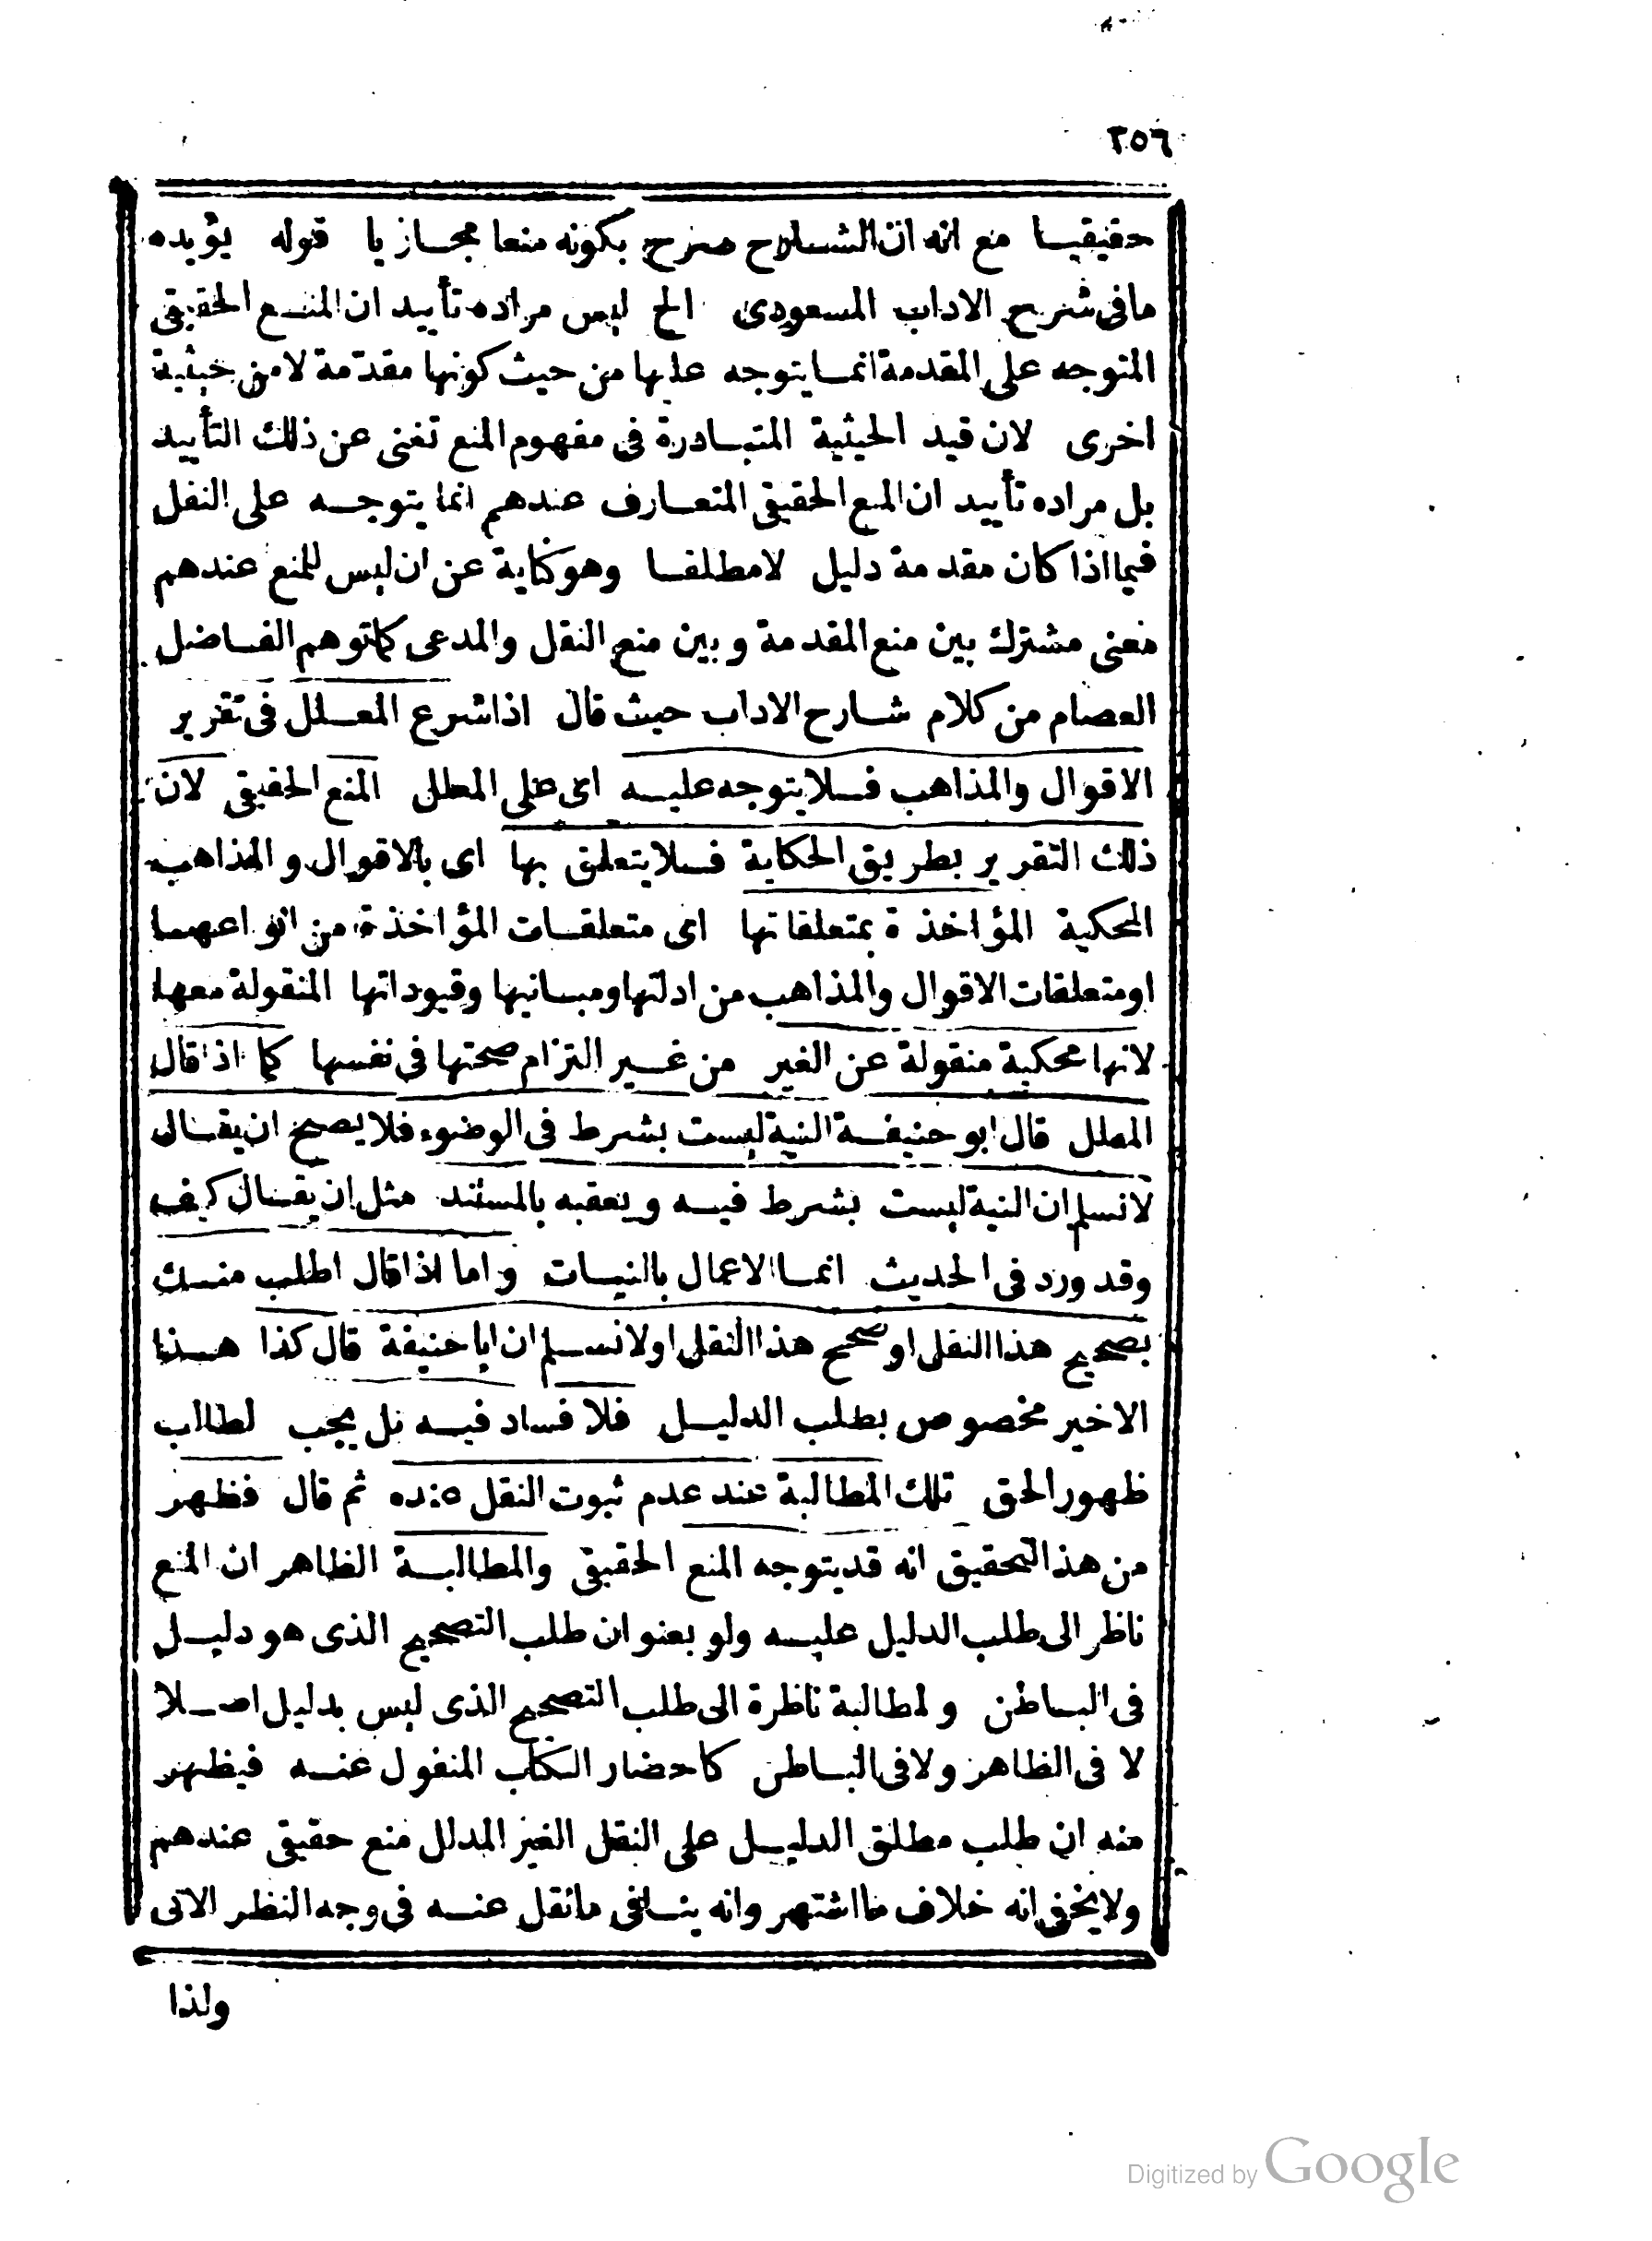 ٢٥٦
حقيقيا مع انه ان الشارح صرح بكونه منعا مجازيا قوله يؤيده
مافى شرح الاداب المسعودى الخ ليس مراده تأييد ان المنع الحقيقى
المتوجه على المقدمة انما يتوجه عليها من حيث كونها مقدمة لا من حيثية
اخرى لان قيد الحيثية المتبادرة فى مفهوم المنع تغنى عن ذلك التأييد
بل مراده تأييد ان المنع الحقيقى المتعارف عندهم انما يتوجه على النقل
فيما اذا كان مقدمة دليل لامطلقا وهو كناية عن ان ليس للمنع عندهم
معنى مشترك بين منع المقدمة وبين منع النقل والمدعى كما توهم الفاضل
العصام من كلام شارح الاداب حيث قال اذا شرع المعلل فى تقرير
الاقوال والمذاهب فلا يتوجه عليه اى على المعلل المنع الحقيقى لان
ذلك التقرير بطريق الحكاية فلا يتعلق بها اى بالاقوال والمذاهب
المحكية المؤاخذة بمتعلقاتها اى متعلقات المؤاخذة من انواعهما
او متعلقات الاقوال والمذاهب من ادلتها ومبانيها وقيوداتها المنقولة معها
لانها محكية منقولة عن الغير من غير التزام صحتها فى نفسها كما اذا قال
المعلل قال ابو حنيفة النية ليست بشرط فى الوضوء فلا يصح ان يقال
لانسلم ان النية ليست بشرط فيه ويعقبه بالمستند مثل ان يقال كيف
وقد ورد فى الحديث انما الاعمال بالنيات واما اذا قال اطلب منك
بصحيح هذا النقل او صحح هذا النقل او لانسلم ان ابا حنيفة قال كذا هذا
الاخير مخصوص بطلب الدليل فلا فساد فيه بل يجب لطالب
ظهور الحق تلك المطالبة عند عدم ثبوت النقل عنده ثم قال فظهر
من هذا التحقيق انه قد يتوجه المنع الحقيقى والمطالبة الظاهر ان المنع
ناظر الى طلب الدليل عليه ولو بعنوان طلب التصحيح الذى هو دليل
فى الباطن ولمطالبة ناظرة الى طلب التصحيح الذى ليس بدليل اصلا
لا فى الظاهر ولا فى الباطن كاحضار الكتاب المنقول عنه فيظهر
منه ان طلب مطلق الدليل على النقل الغير المدلل منع حقيقى عندهم
ولا يخفى انه خلاف ما اشتهر وانه ينافى ما نقل عنه فى وجه النظر الاتى
ولذا
Digitized by Google